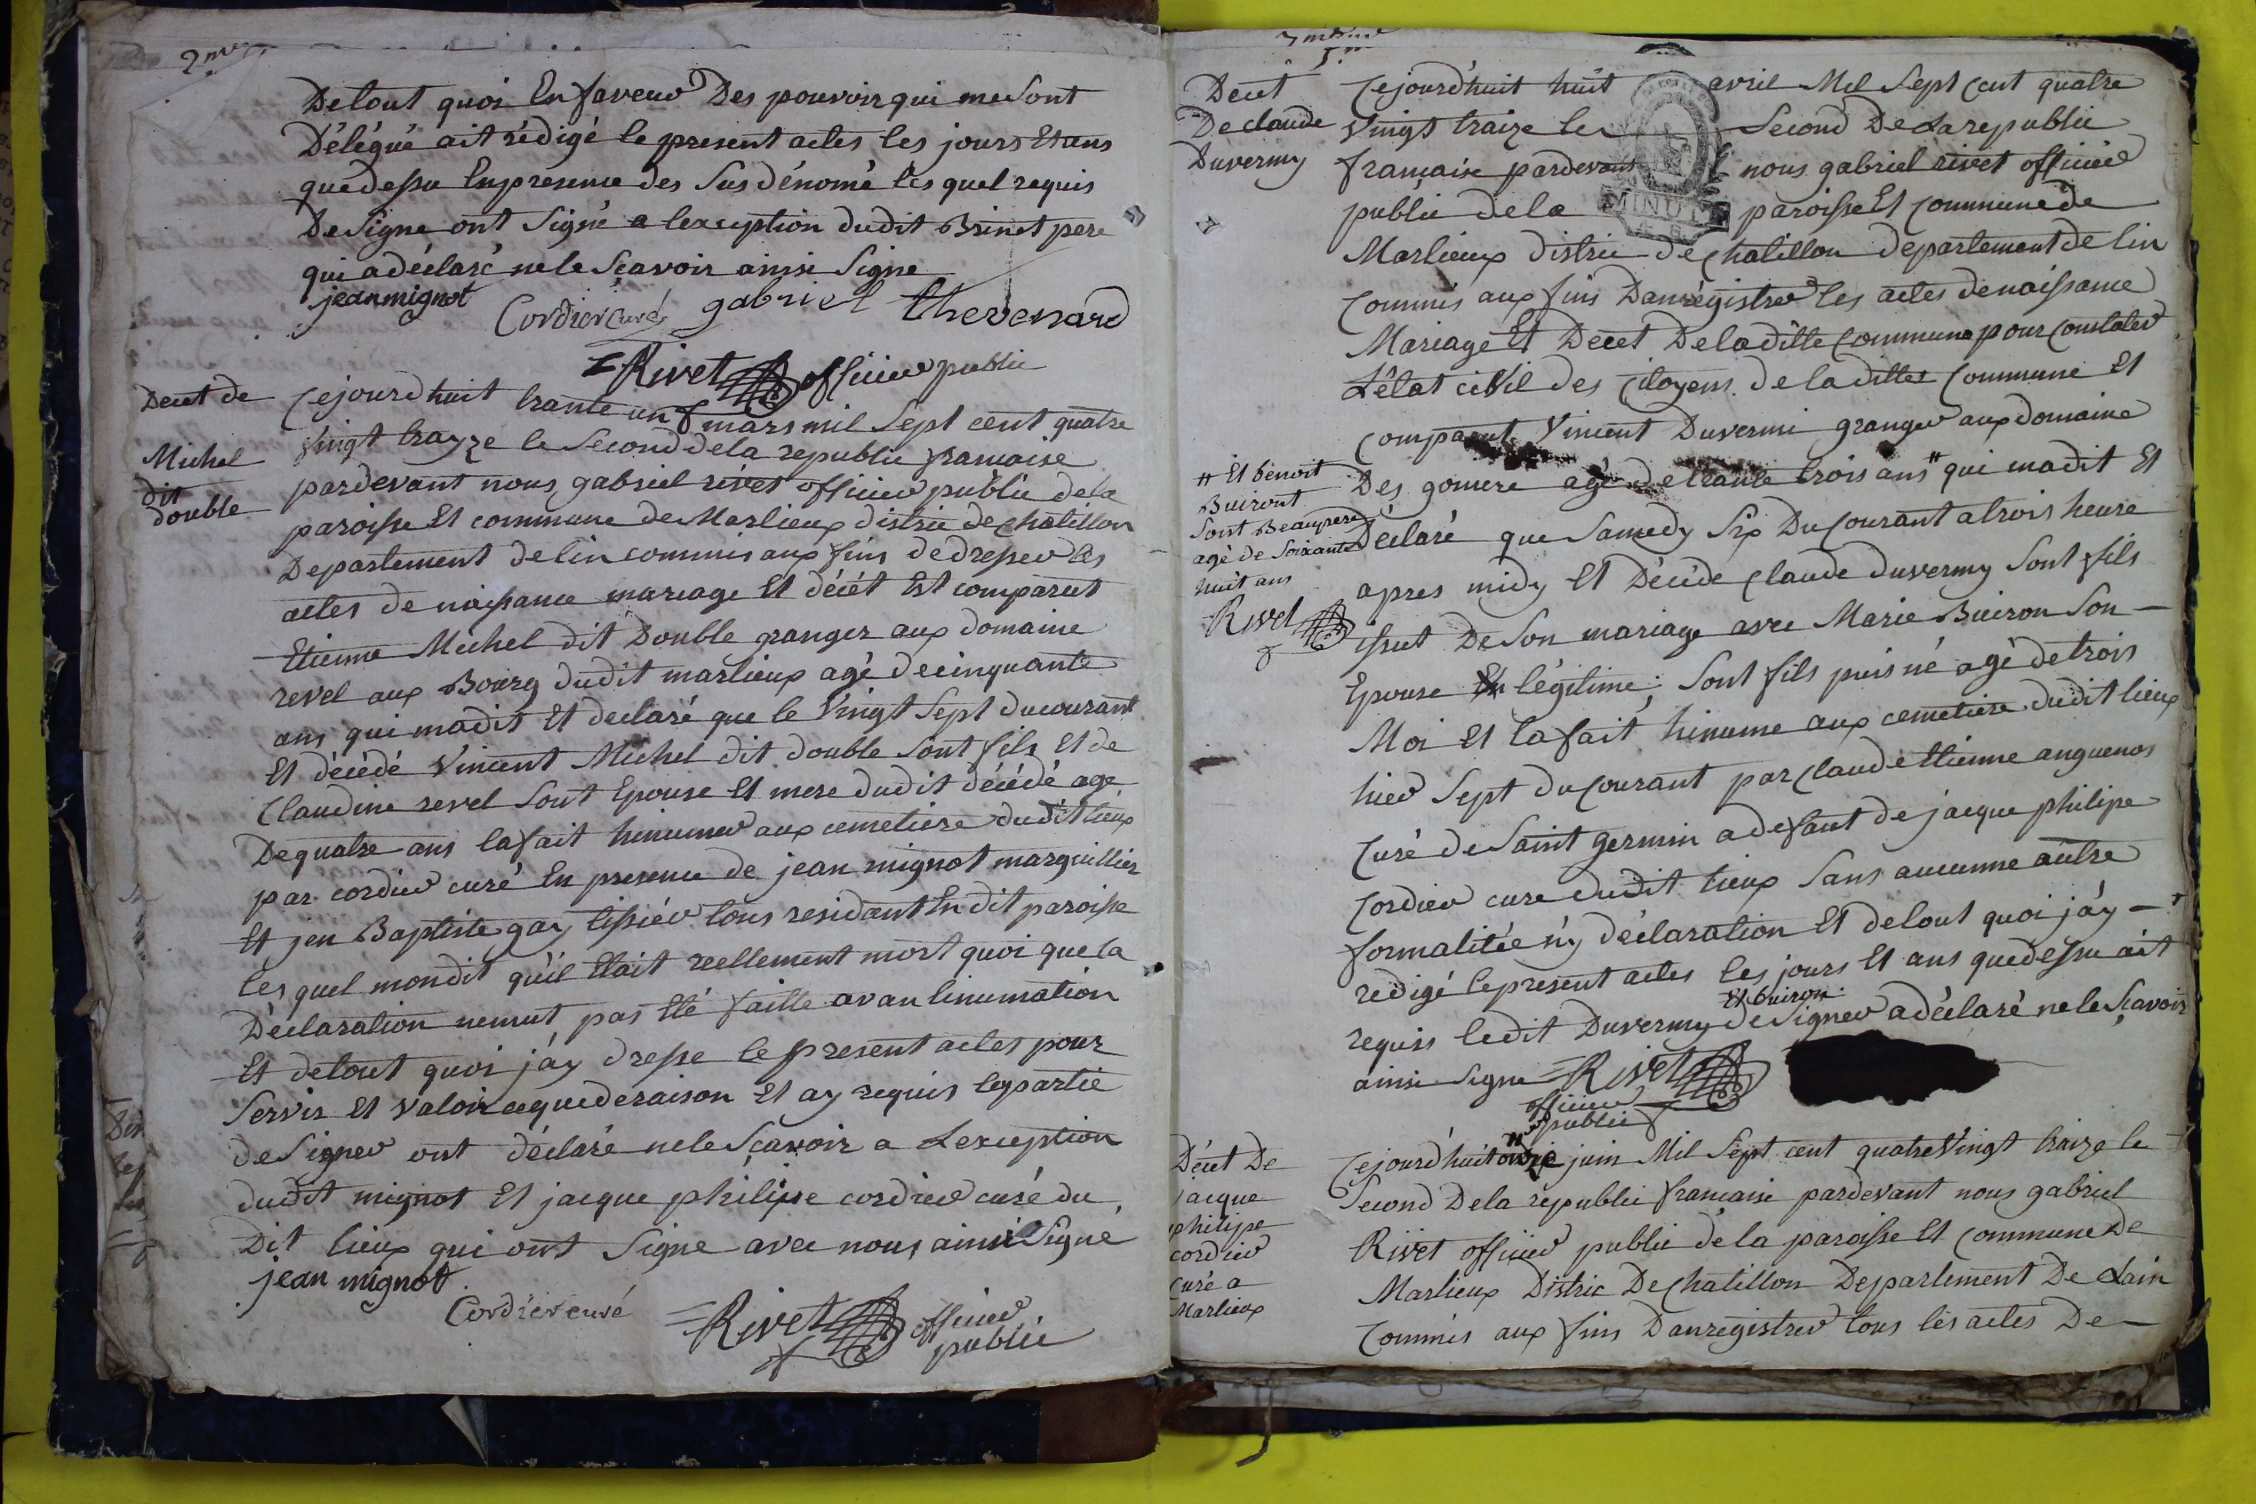 2me
De tout quoi En faveur Des pouvoir qui me Sont
Délégué ait rédigé le present actes les jours Et ans
que dessu En presence des Sus dénomé les quel requis
De Signe ont Signé a lexception du dit Brinet pere
qui a déclaré ne le Sçavoir ainsi Signe
jean mignot Cordier curé gabriel thevenard
Rivet officier public
Decet de
Michel
dit
double
Cejourdhuit trante un mars mil Sept cent quatre
Vingt trayze le Second de la republic francaise
pardevant nous gabriel rivet officier public de la
paroisse Et commune de Marlieux distric de chatillon
Departement de lin commis aux fins de dresser les
actes de naissance mariage Et décét Est comparut
Etienne Michel dit Double granger aux domaine
revel aux Bourg dudit marlieux agé de cinquante
ans qui madit Et declaré que le Vingt Sept du courant
Et décédé Vincent Michel dit double Sont fils Et de
Claudine revel Sont Epouse Et mere dudit décédé age
De quatre ans la fait hinumer aux cemetiere dudit lieux
par cordier curé En presence de jean mignot marguillier
Et jen Baptiste gay tissiér tous residant En dit paroisse
les quel mondit qu'il Etait reellement mort quoi que la
Déclaration nemut pas Eté faitte avan linumation
Et de tout quoi j'ay dresse le present actes pour
Servir Et valoir ceque de raison Et ay requis le partie
de Signer ont déclaré ne le Scavoir a Lexception
dudit mignot Et jacque philipe cordier curé du
Dit lieux qui ont Signe avec nous ainsi Signé
jean mignot
Cordier curé Rivet officier
public
Decet
De claude
Duvermy
Cejourd'huit huit avril Mil Sept Cent quatre
Vingt traize le Second De La republic
francaise pardevant nous gabriel rivet officier
public de la MINUTE paroisse Et Commune de
Marlieux distric de chatillon departement de lin
Commis aux fins Danregistrer les actes de naissance
Mariage Et Decet De la ditte Commune pour Constater
L'état civil des Citoyens de la ditte Commune Et
Comparut Vincent Duvermi granger aux domaine
Des gonere agé de trante trois ans # qui madit Et
# Et benoit
Buiront
Sont Beaupere
agé de Soixante
huit ans
Rivet
Déclaré que Samedy Six Du Courant a trois heure
apres midy Et Décéde Claude duvermy Sont fils
issut De Son mariage avec Marie Buiron Son
Epouse légitime; Sont fils puis né agé de trois
Moi Et la fait hinume aux cemetiere dudit lieux
hier Sept du Courant par Claude Etienne anguenos
Curé de Saint germin a defaut de jacque philipe
Cordier cure dudit lieux Sans aucunne autre
formalitée n'y déclaration Et de tout quoi j'ay
redigé le present actes les jours Et ans que dessu ait
Et buiron
requis le dit Duvermy de Signer a déclaré ne le Sçavoir
ainsi Signe Rivet
officier
public
Décet De
jacque
philipe
cordier
curé a
Marlieux
Cejourd'huit onze juin Mil Sept cent quatre Vingt traize le
Second De la republic francaise pardevant nous gabriel
Rivet officier public de la paroisse Et Commune De
Marlieux Distric De Chatillon Departement De Lain
Commis aux fins Danregistrer tous les actes De